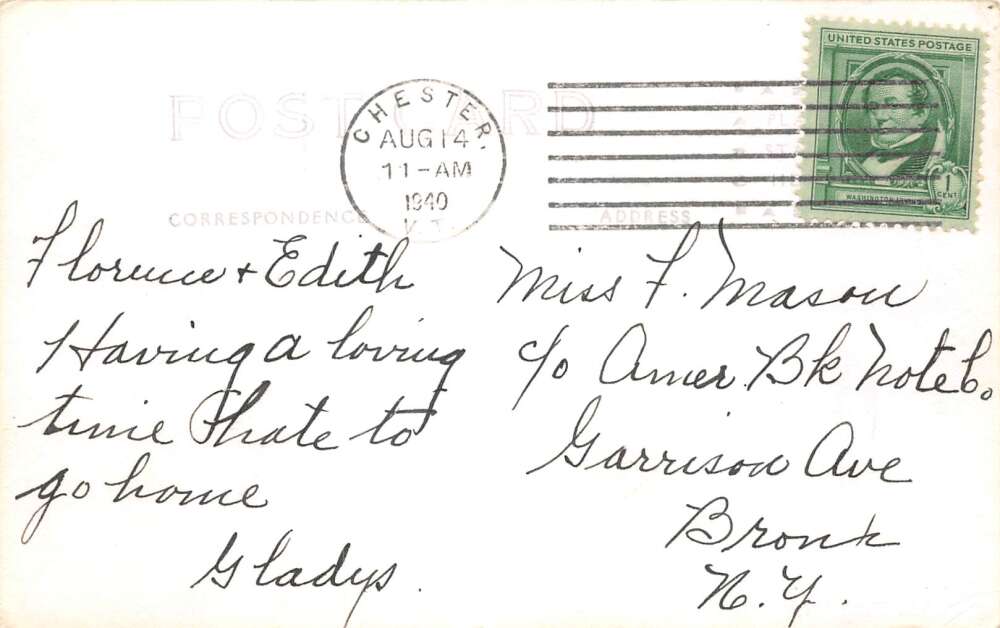 UNITED STATES POSTAGE
WASHINGTON IRVING
1
CENT
POST CARD
CHESTER,
AUG 14
11-AM
1940
V.T.
CORRESPONDENCE
ADDRESS
Florence + Edith
Having a loving
time I hate to
go home
Gladys.
Miss F. Mason
c/o Amer. Bk Note Co.
Garrison Ave
Bronx
N.Y.